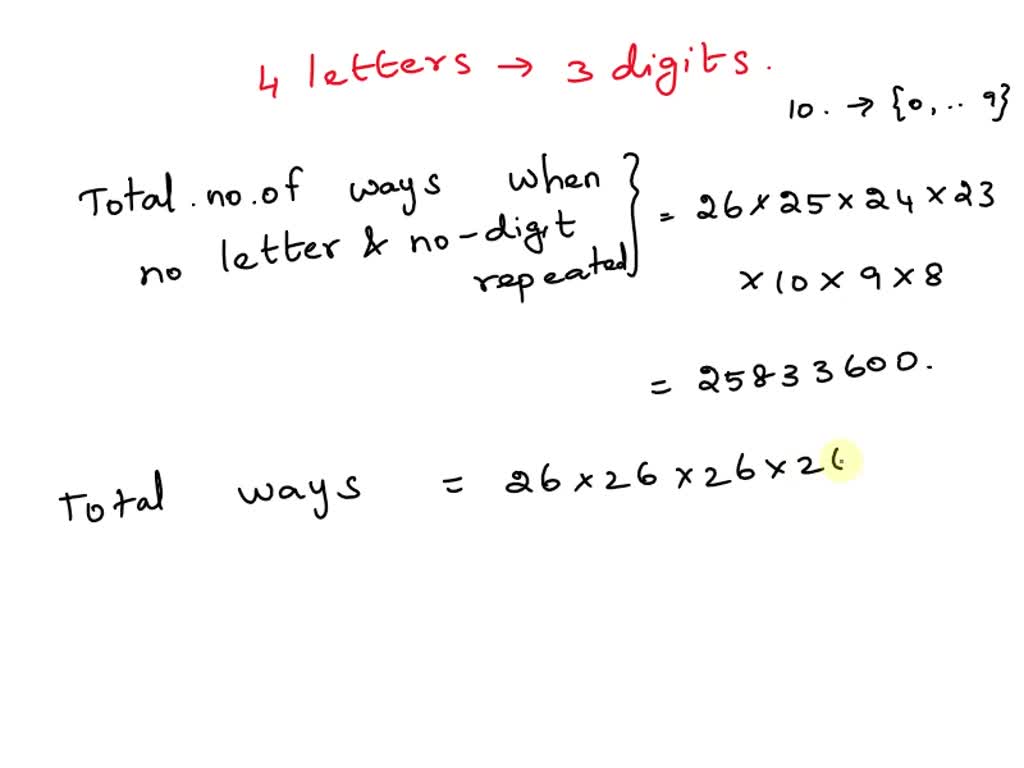 4 letters → 3 digits.
10. → {0, .. 9}
Total.no.of ways when
no letter & no-digit
repeated } = 26 × 25 × 24 × 23
× 10 × 9 × 8
= 25833600.
Total ways = 26 × 26 × 26 × 26